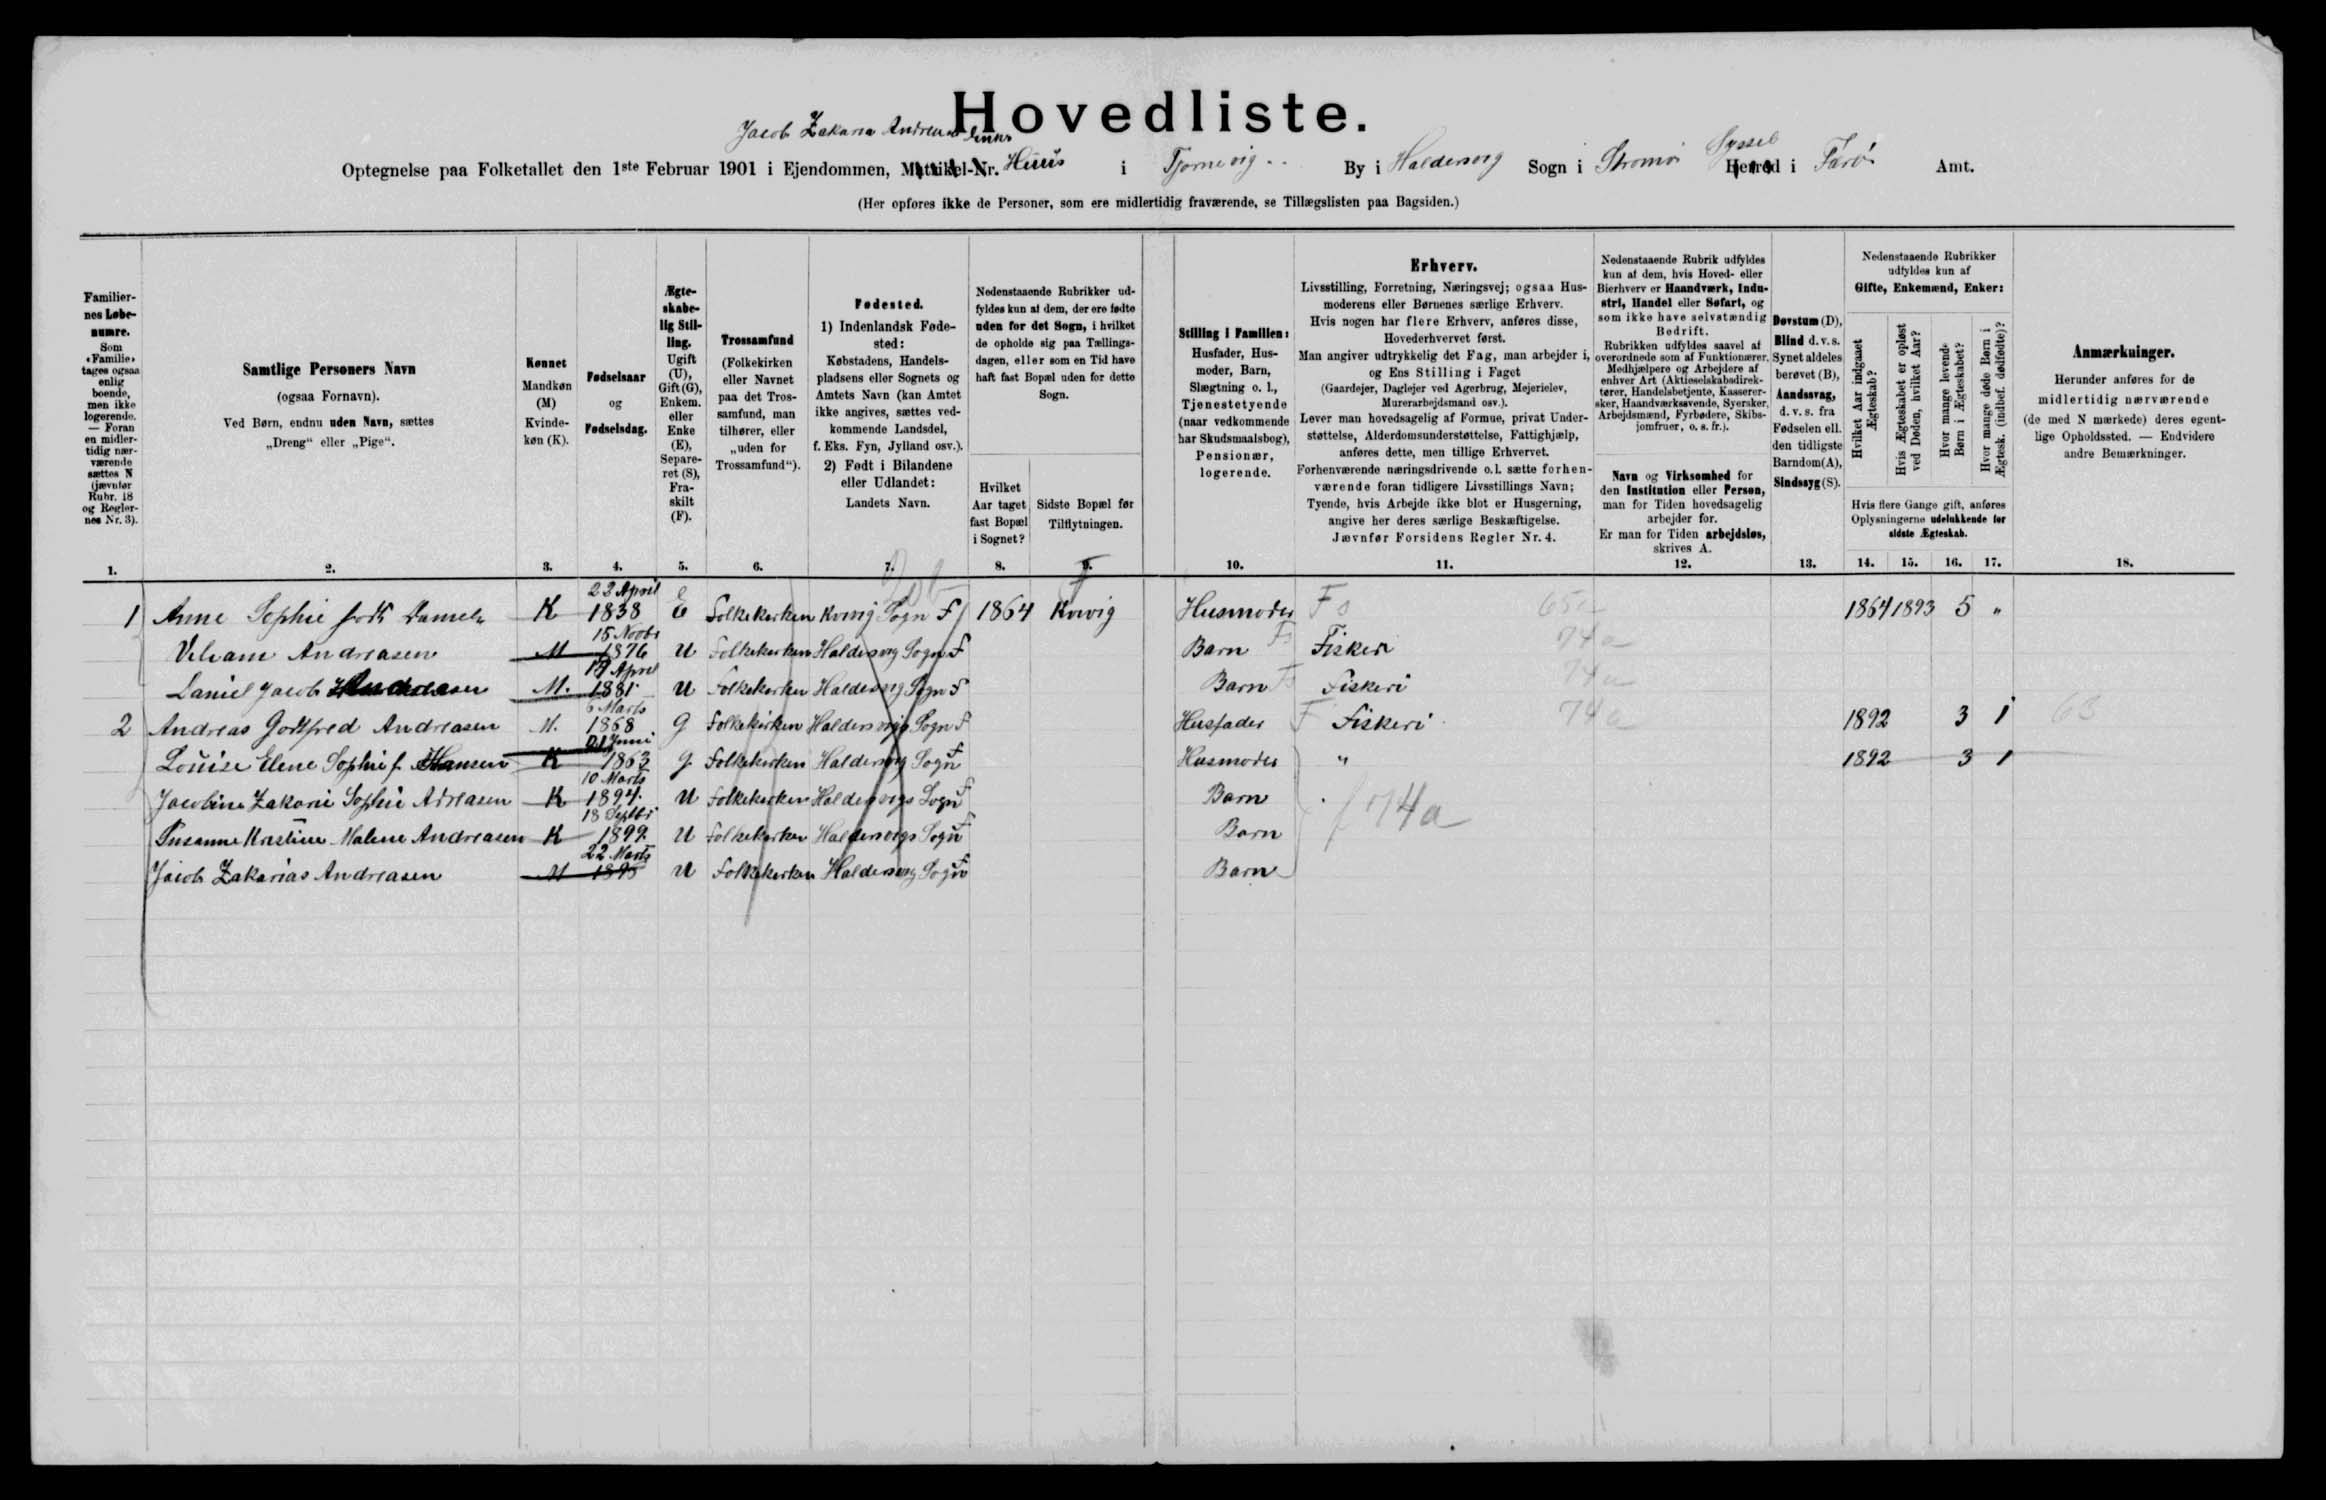 Hovedliste.
Jacob Zakaria Andreasens Enkes
Optegnelse paa Folketallet den 1ste Februar 1901 i Ejendommen, Matrikel-Nr. Huus i Tjørnevig By i Haldersvig Sogn i Strømø Syssel Herred i Færø Amt.
(Her opføres ikke de Personer, som ere midlertidig fraværende, se Tillægslisten paa Bagsiden.)
Familiernes Løbenumre. Som «Familie» tages ogsaa enlig boende, men ikke logerende. — Foran en midlertidig nærværende sættes N (jævnfør Rubr. 18 og Reglernes Nr. 3).
Samtlige Personers Navn (ogsaa Fornavn). Ved Børn, endnu uden Navn, sættes „Dreng“ eller „Pige“.
Kønnet Mandkøn (M) Kvindekøn (K).
Fødselsaar og Fødselsdag.
Ægteskabelig Stilling. Ugift (U), Gift (G), Enkem. eller Enke (E), Separeret (S), Fraskilt (F).
Trossamfund (Folkekirken eller Navnet paa det Trossamfund, man tilhører, eller „uden for Trossamfund“).
Fødested. 1) Indenlandsk Fødested: Købstadens, Handelspladsens eller Sognets og Amtets Navn (kan Amtet ikke angives, sættes vedkommende Landsdel, f. Eks. Fyn, Jylland osv.). 2) Født i Bilandene eller Udlandet: Landets Navn.
Nedenstaaende Rubrikker udfyldes kun af dem, der ere fødte uden for det Sogn, i hvilket de opholde sig paa Tællingsdagen, eller som en Tid have haft fast Bopæl uden for dette Sogn.
Hvilket Aar taget fast Bopæl i Sognet?
Sidste Bopæl før Tilflytningen.
Stilling i Familien: Husfader, Husmoder, Barn, Slægtning o. l., Tjenestetyende (naar vedkommende har Skudsmaalsbog), Pensionær, logerende.
Erhverv.
Livsstilling, Forretning, Næringsvej; ogsaa Husmoderens eller Børnenes særlige Erhverv.
Hvis nogen har flere Erhverv, anføres disse, Hovederhvervet først.
Man angiver udtrykkelig det Fag, man arbejder i, og Ens Stilling i Faget
(Gaardejer, Daglejer ved Agerbrug, Mejerielev, Murerarbejdsmand osv.).
Lever man hovedsagelig af Formue, privat Understøttelse, Alderdomsunderstøttelse, Fattighjælp, anføres dette, men tillige Erhvervet.
Forhenværende næringsdrivende o. l. sætte forhenværende foran tidligere Livsstillings Navn;
Tyende, hvis Arbejde ikke blot er Husgerning, angive her deres særlige Beskæftigelse.
Jævnfør Forsidens Regler Nr. 4.
Nedenstaaende Rubrik udfyldes kun af dem, hvis Hoved- eller Bierhverv er Haandværk, Industri, Handel eller Søfart, og som ikke have selvstændig Bedrift.
Rubrikken udfyldes saavel af overordnede som af Funktionærer, Medhjælpere og Arbejdere af enhver Art (Aktieselskabsdirektører, Handelsbetjente, Kasserersker, Haandværkssvende, Syersker, Arbejdsmænd, Fyrbødere, Skibsjomfruer, o. s. fr.).
Navn og Virksomhed for den Institution eller Person, man for Tiden hovedsagelig arbejder for.
Er man for Tiden arbejdsløs, skrives A.
Døvstum (D), Blind d. v. s. Synet aldeles berøvet (B), Aandssvag, d. v. s. fra Fødselen ell. den tidligste Barndom (A), Sindssyg (S).
Nedenstaaende Rubrikker udfyldes kun af Gifte, Enkemænd, Enker:
Hvilket Aar indgaaet Ægteskab?
Hvis Ægteskabet er opløst ved Døden, hvilket Aar?
Hvor mange levende Børn i Ægteskabet?
Hvor mange døde Børn i Ægtesk. (indbef. dødfødte)?
Hvis flere Gange gift, anføres Oplysningerne udelukkende for sidste Ægteskab.
Anmærkninger.
Herunder anføres for de midlertidig nærværende (de med N mærkede) deres egentlige Opholdssted. — Endvidere andre Bemærkninger.
1. 2. 3. 4. 5. 6. 7. 8. 9. 10. 11. 12. 13. 14. 15. 16. 17. 18.
1 Anne Sophie født Daniels K 22 April 1838 E Folkekirken Kvivig Sogn F 1864 Kvivig Husmoder F 65a 1864 1893 5 "
Viliam Andreasen M 15 Novbr 1876 U Folkekirken Haldersvig Sogn F Barn Fiskeri 74a
Daniel Jacob Andreasen M. 19 April 1881 U Folkekirken Haldersvig Sogn F Barn Fiskeri 74a
2 Andreas Gottfred Andreasen M. 6 Marts 1868 G Folkekirken Haldersvigs Sogn F Husfader F Fiskeri 74a 1892 3 1 63
Louise Elene Sophie f. Hansen K 21 Juni 1863 G Folkekirken Haldersvig Sogn F Husmoder " 1892 3 1
Jacobine Zakarie Sophie Adreasen K 10 Marts 1894. U Folkekirken Haldersvigs Sogn F Barn 74a
Susanne Kristine Malene Andreasen K 18 Septbr 1899. U Folkekirken Haldersvigs Sogn F Barn
Jacob Zakarias Andreasen M 22 Marts 1895 U Folkekirken Haldersvig Sogn F Barn